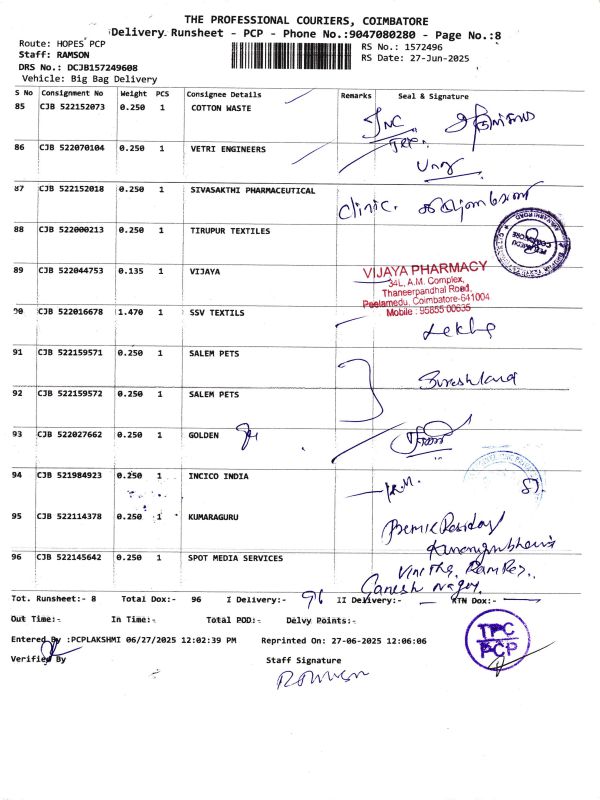 THE PROFESSIONAL COURIERS, COIMBATORE
Delivery Runsheet - PCP - Phone No.:9047080280 - Page No.:8
Route: HOPES PCP
RS No.: 1572496
Staff: RAMSON
RS Date: 27-Jun-2025
DRS No.: DCJB157249608
Vehicle: Big Bag Delivery
S No Consignment No Weight PCS Consignee Details Remarks Seal & Signature
85 CJB 522152073 0.250 1 COTTON WASTE
86 CJB 522070104 0.250 1 VETRI ENGINEERS
87 CJB 522152018 0.250 1 SIVASAKTHI PHARMACEUTICAL
Clinic.
88 CJB 522000213 0.250 1 TIRUPUR TEXTILES
89 CJB 522044753 0.135 1 VIJAYA
VIJAYA PHARMACY
34L, A.M. Complex,
Thaneerpandhal Road,
Peelamedu, Coimbatore-641004
Mobile : 95855 00635
90 CJB 522016678 1.470 1 SSV TEXTILS
Lekha
91 CJB 522159571 0.250 1 SALEM PETS
92 CJB 522159572 0.250 1 SALEM PETS
93 CJB 522027662 0.250 1 GOLDEN
94 CJB 521984923 0.250 1 INCICO INDIA
95 CJB 522114378 0.250 1 KUMARAGURU
96 CJB 522145642 0.250 1 SPOT MEDIA SERVICES
Ganesh nagar
Tot. Runsheet:- 8 Total Dox:- 96 I Delivery:- 96 II Delivery:- RTN Dox:-
Out Time:- In Time:- Total POD:- Delvy Points:-
Entered By :PCPLAKSHMI 06/27/2025 12:02:39 PM Reprinted On: 27-06-2025 12:06:06
TPC
PCP
Verified By
Staff Signature
Ramson